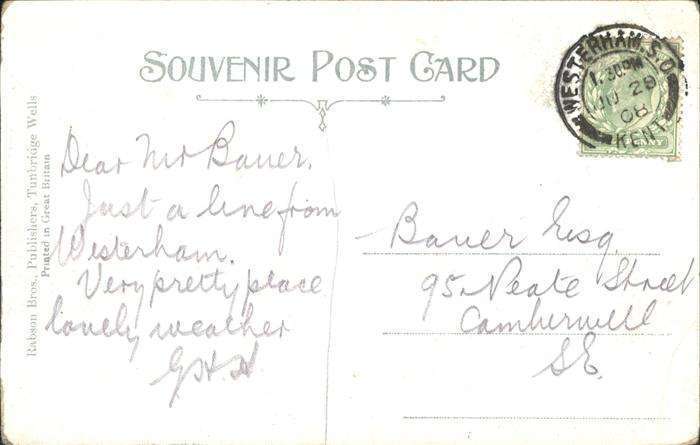 SOUVENIR POST CARD
WESTERHAM S.O.
1.30PM
JU 28
08
KENT
PENNY
Rabson Bros., Publishers, Tunbridge Wells
Printed in Great Britain
Dear Mr Bauer.
Just a line from
Westerham.
Very pretty place
lovely weather
G.H.A.
Bauer Esq.
95 Neate Street
Camberwell
S.E.